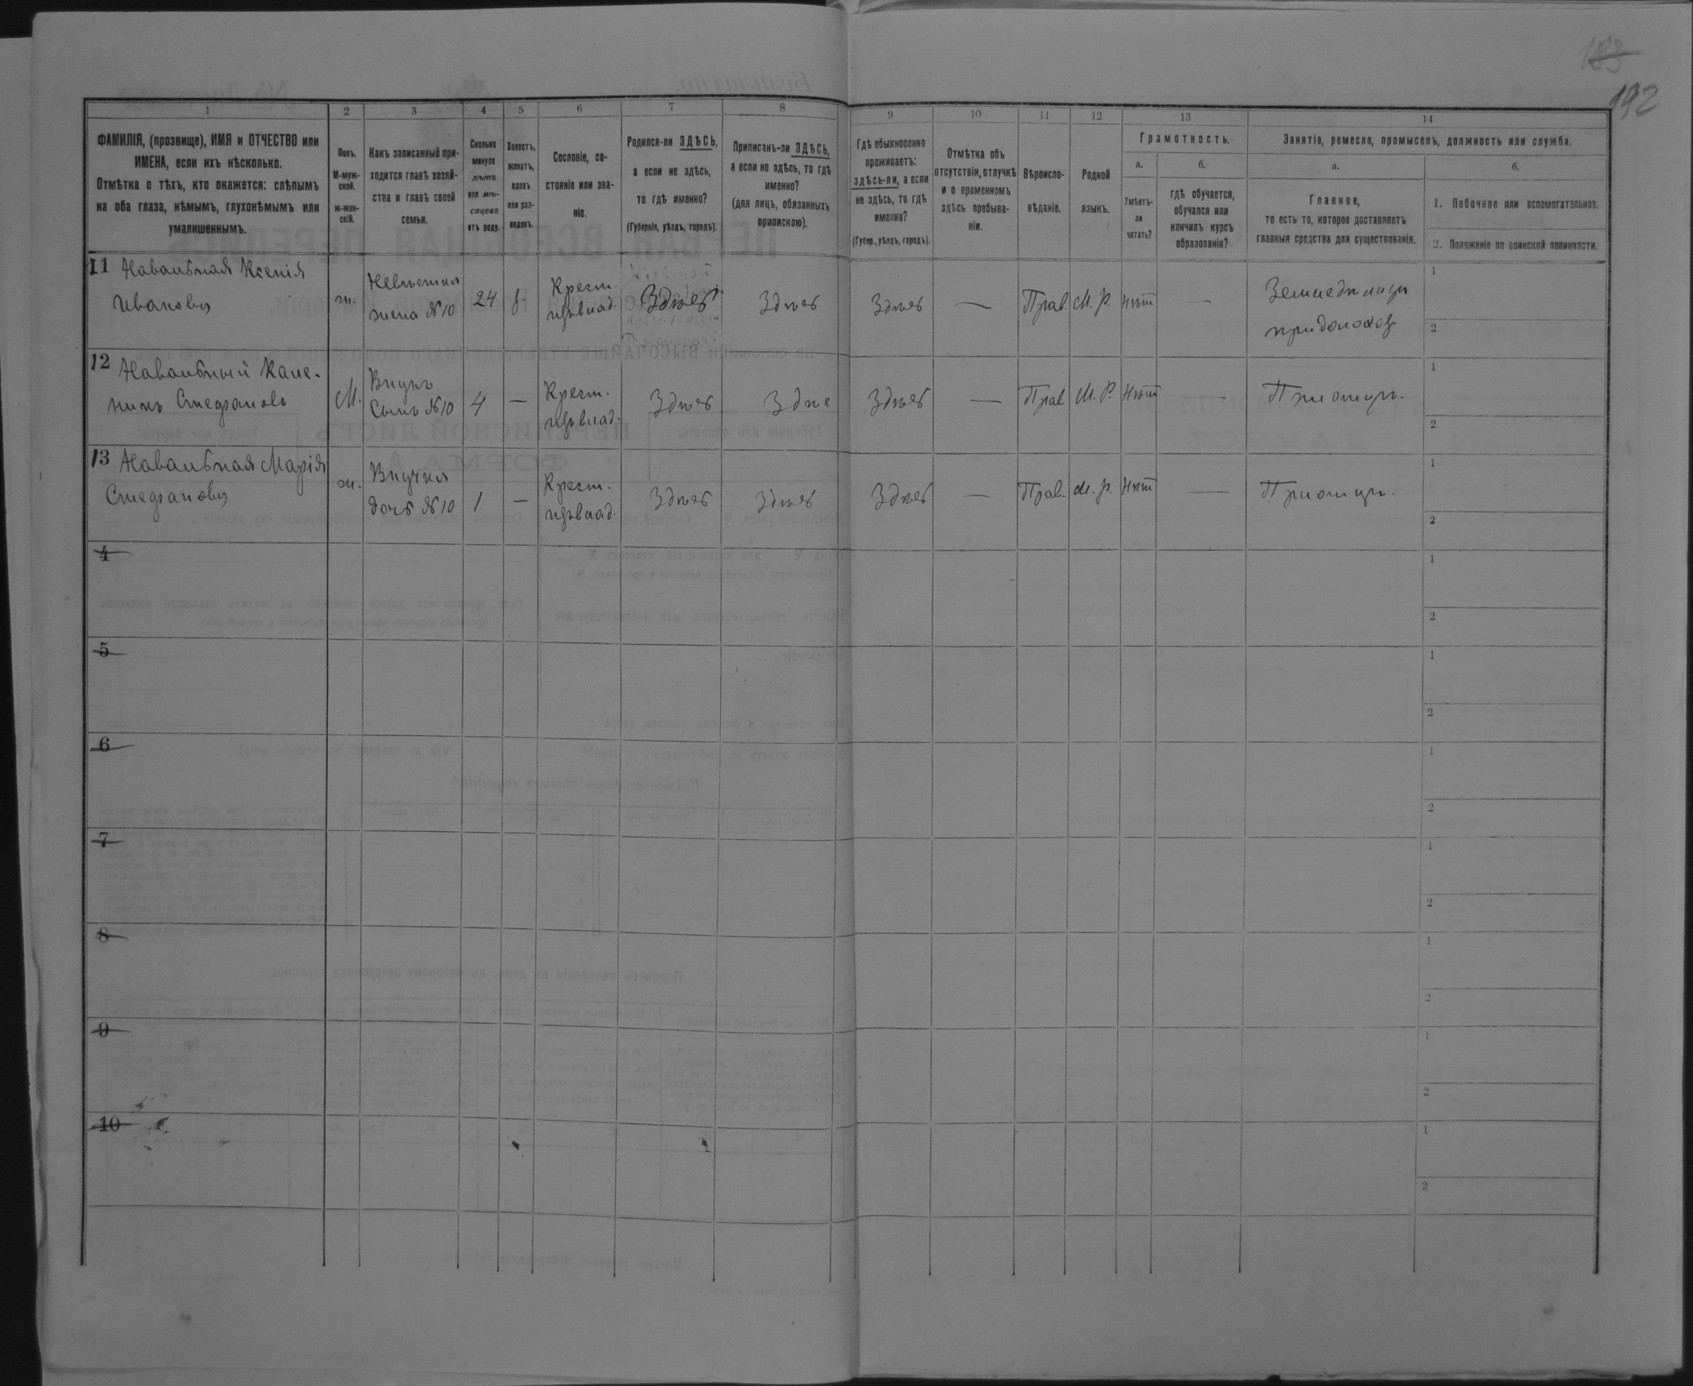 183
192
1 2 3 4 5 6 7 8 9 10 11 12 13 14
ФАМИЛІЯ, (прозвище), ИМЯ и ОТЧЕСТВО или
ИМЕНА, если ихъ нѣсколько.
Отмѣтка о тѣхъ, кто окажется: слѣпымъ
на оба глаза, нѣмымъ, глухонѣмымъ или
умалишеннымъ.
Полъ.
М-муж-
ской.
ж-жен-
скій.
Какъ записанный при-
ходится главѣ хозяй-
ства и главѣ своей
семьи.
Сколько
минуло
лѣтъ
или мѣ-
сяцевъ
отъ роду.
Холостъ,
женатъ,
вдовъ
или раз-
веденъ.
Сословіе, со-
стояніе или зва-
ніе.
Родился-ли ЗДѢСЬ,
а если не здѣсь,
то гдѣ именно?
(Губернія, уѣздъ, городъ).
Приписанъ-ли ЗДѢСЬ,
а если не здѣсь, то гдѣ
именно?
(для лицъ, обязанныхъ
припискою).
Гдѣ обыкновенно
проживаетъ:
здѣсь-ли, а если
не здѣсь, то гдѣ
именно?
(Губер., уѣздъ, городъ).
Отмѣтка объ
отсутствіи, отлучкѣ
и о временномъ
здѣсь пребыва-
ніи.
Вѣроиспо-
вѣданіе.
Родной
языкъ.
Грамотность.
а.
Умѣетъ-
ли
читать?
б.
гдѣ обучается,
обучался или
кончилъ курсъ
образованія?
Занятіе, ремесло, промыселъ, должность или служба.
а.
Главное,
то есть то, которое доставляетъ
главныя средства для существованія.
б.
1. Побочное или вспомогательное.
2. Положеніе по воинской повинности.
11 Навальная Ксенія
Иванова
ж.
Невѣстка
жена №10
24
Крест.
Здѣсь Здѣсь Здѣсь — Прав. М. Р. Нѣтъ —
1
2
12
Стефановъ
М.
Внукъ
Сынъ №10
4 —
Крест.
Здѣсь Здѣсь — Прав М. Р. Нѣтъ —
1
2
13 Навальная Марія
Стефанова
ж.
Внучка
дочь №10
1 —
Крест.
Здѣсь Здѣсь Здѣсь — Прав. М. Р. Нѣтъ —
1
2
4
1
2
5
1
2
6
1
2
7
1
2
8
1
2
9
1
2
10
1
2